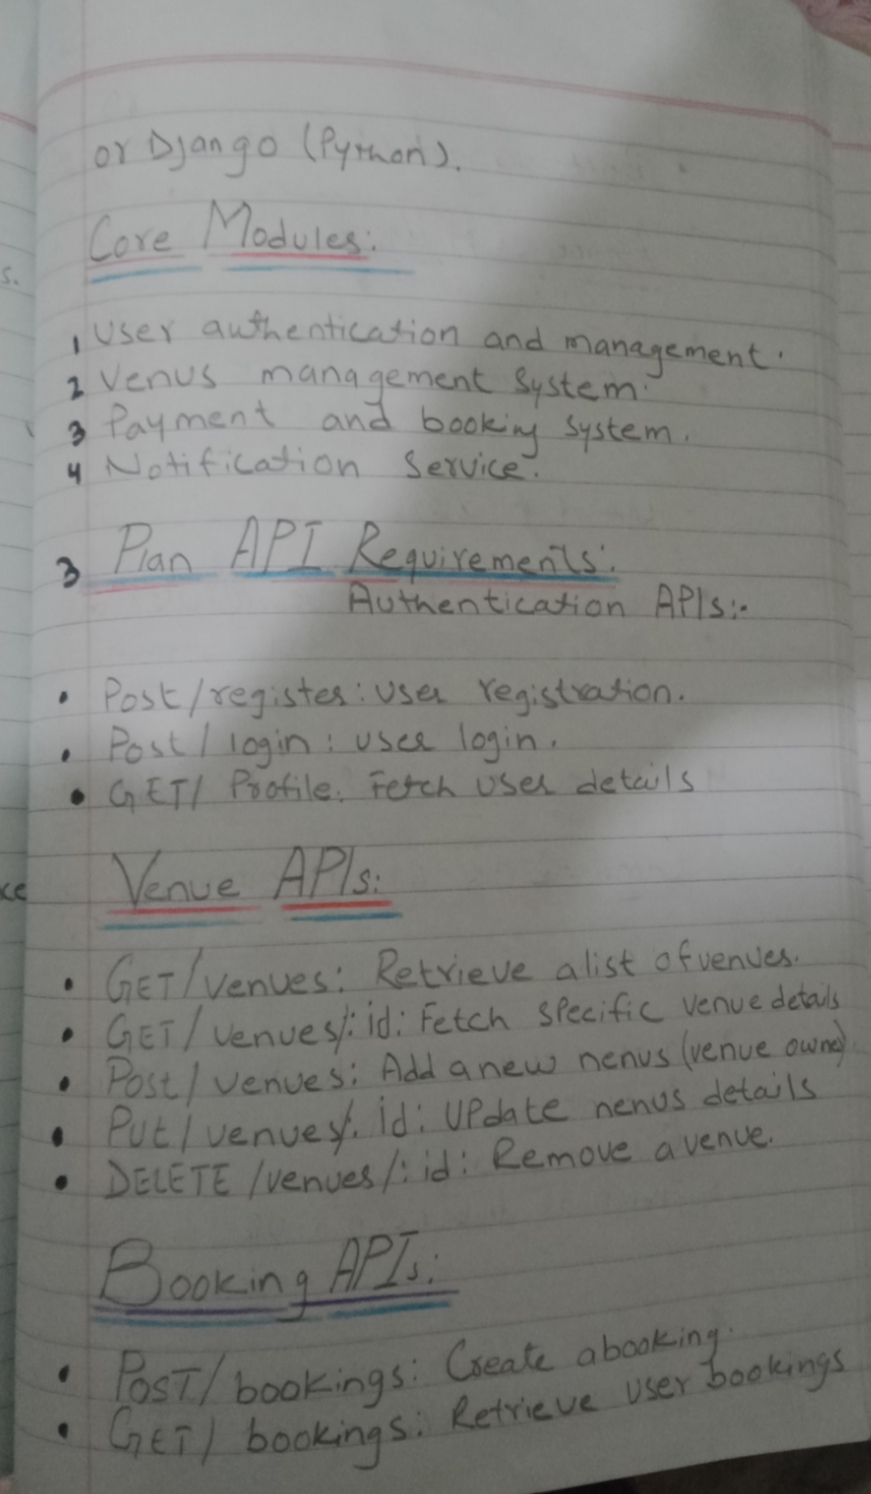 or Django (Python).
Core Modules:
s.
1 User authentication and management.
2 Venus management System.
3 Payment and booking System.
4 Notification Service.
3 Plan API Requirements:
Authentication APIs:-
• Post/register: user registration.
• Post/login: user login.
• GET/ Profile. Fetch user details
Venue APIs:
ce
• GET/venues: Retrieve a list of venues.
• GET/venues/:id: Fetch Specific venue details
• Post/venues: Add a new nenus (venue owner)
• Put/venues/.id: Update nenus details
• DELETE /venues/:id: Remove a venue.
Booking APIs:
• POST/bookings: Create a booking.
• GET/ bookings: Retrieve user bookings